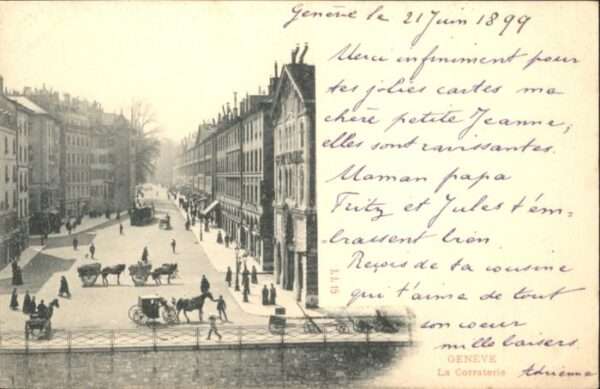 Genève le 21 Juin 1899
Merci infiniment pour
tes jolies cartes ma
chère petite Jeanne,
elles sont ravissantes.
Maman papa
Fritz et Jules t'em-
brassent bien
Reçois de ta cousine
qui t'aime de tout
son coeur
mille baisers.
Adrienne
GENÈVE
La Corraterie